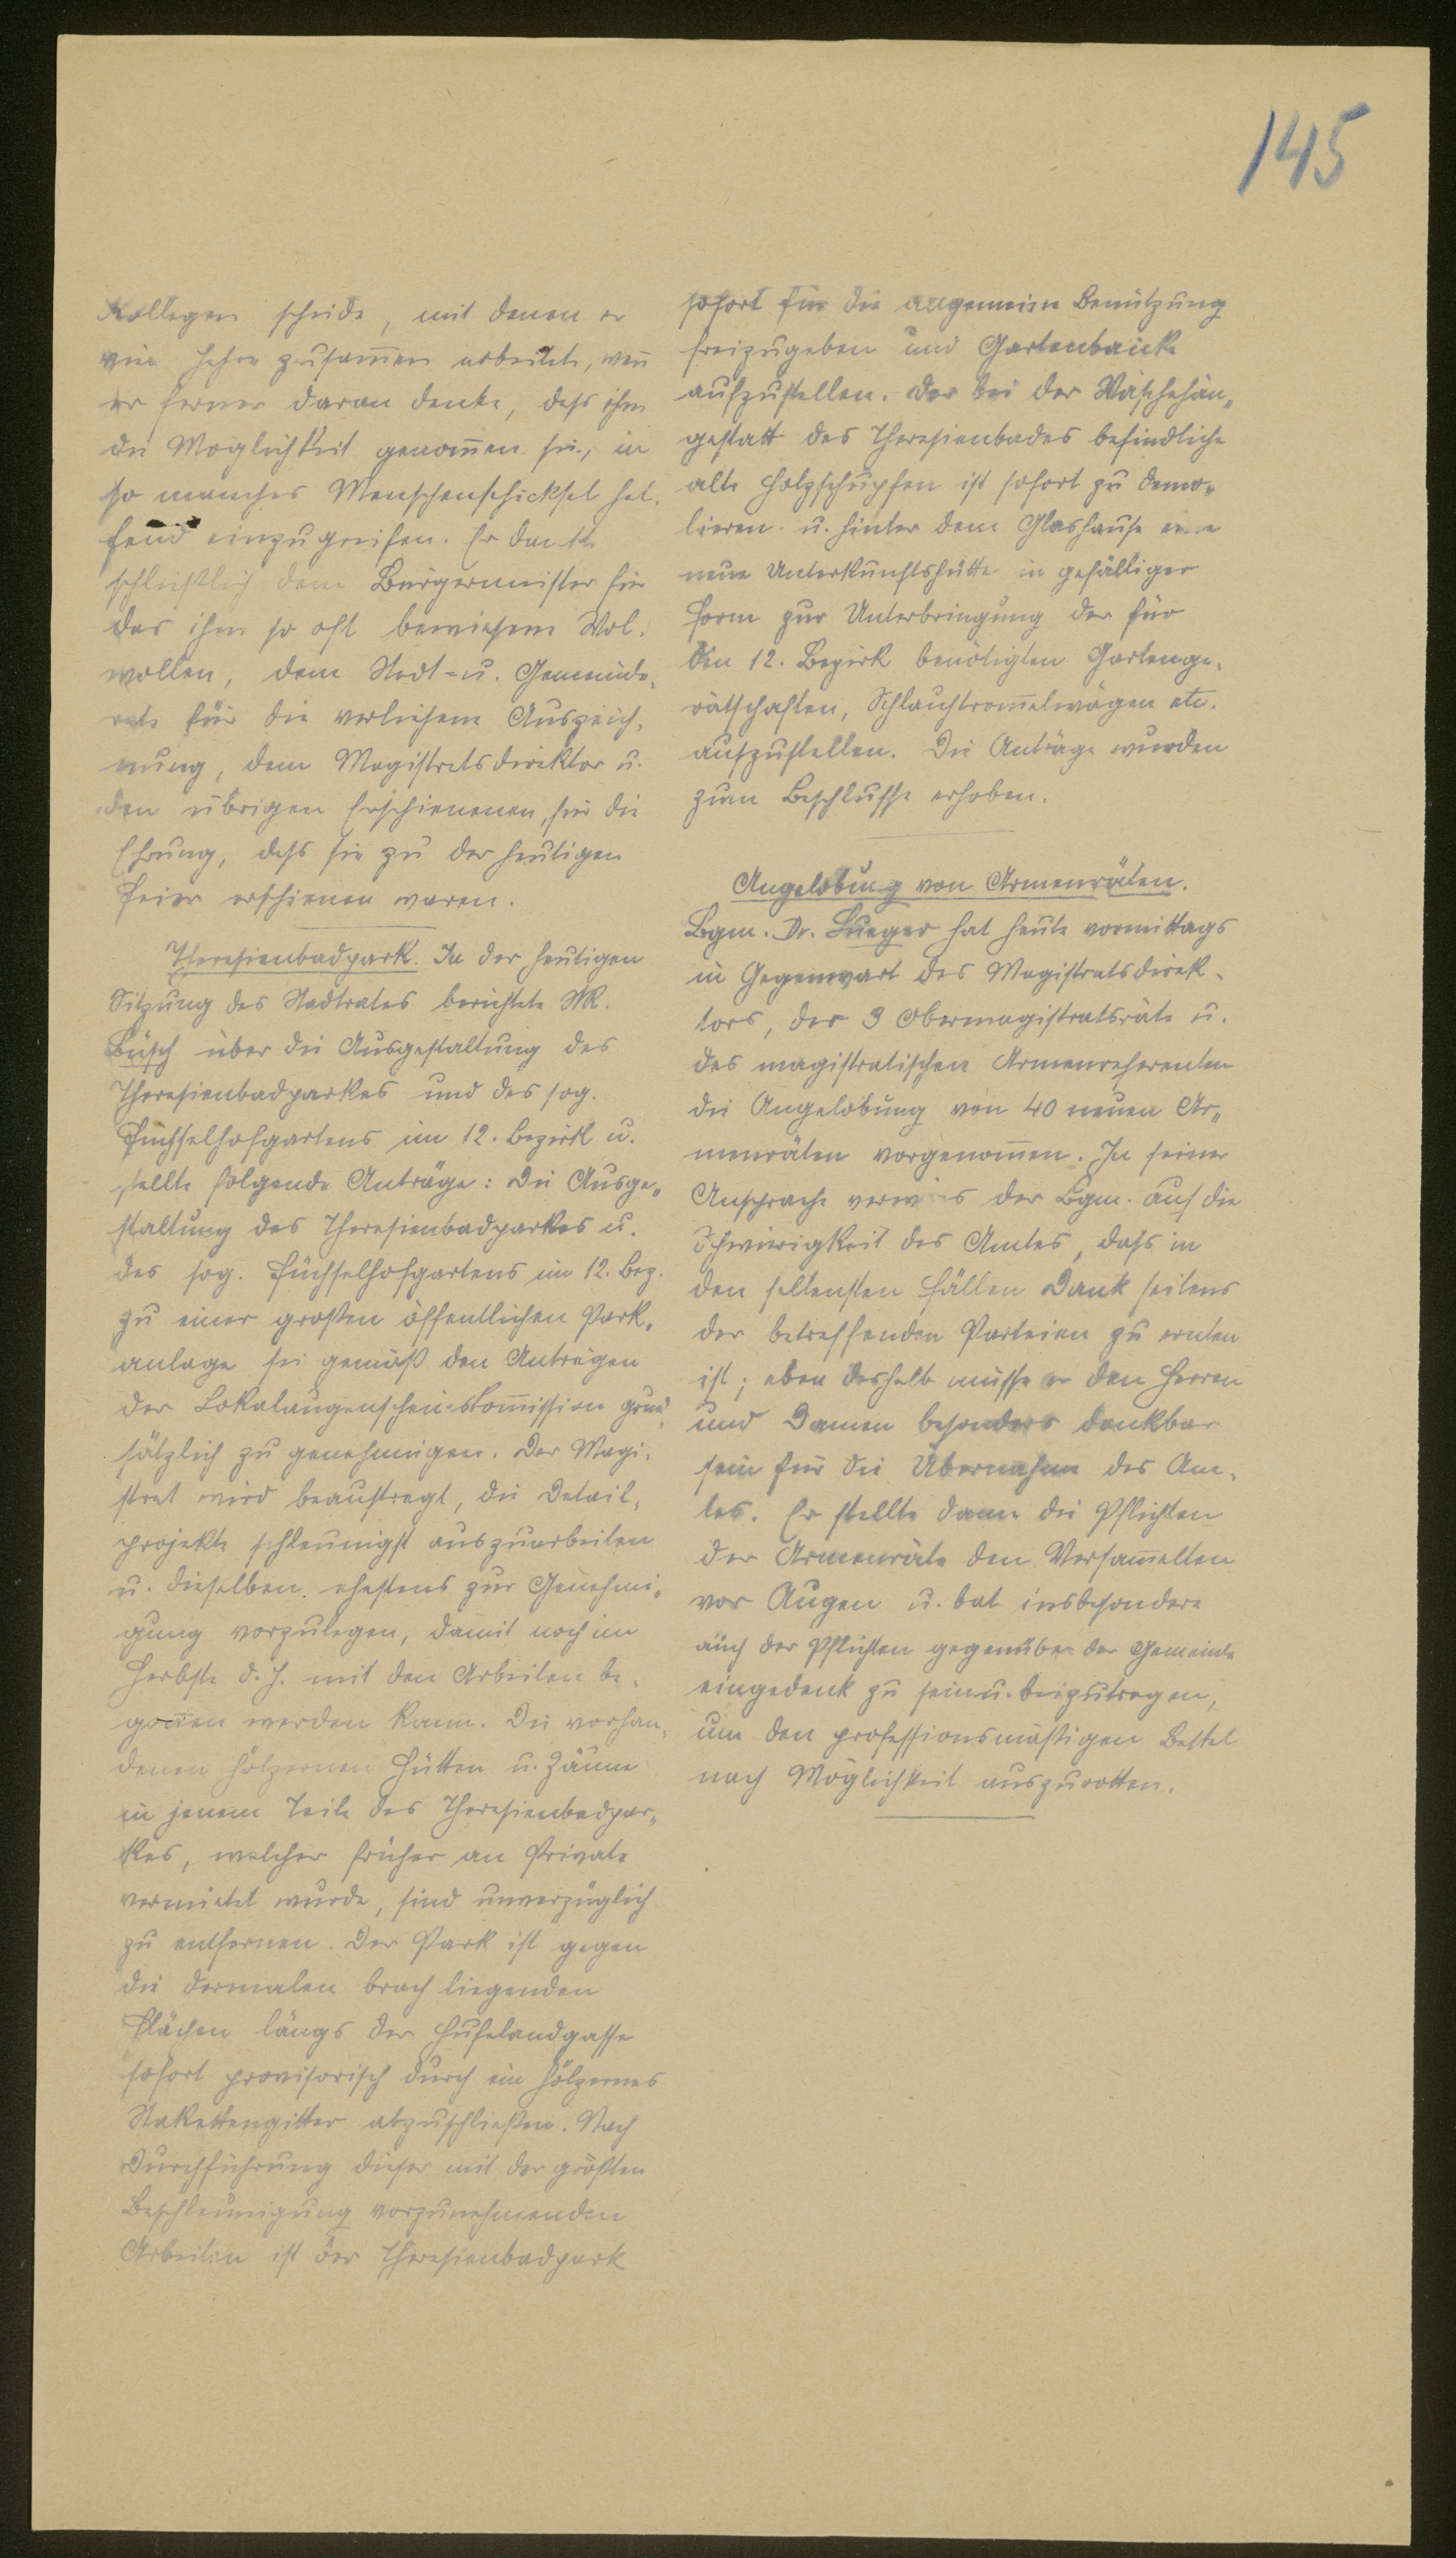 145
Kollegen scheide, mit denen er
viele Jahre zusam̅en arbeitete, wen̅
er ferner daran denke, dass ihm
die Möglichkeit genom̅en sei, in
so manches Menschenschicksal hel-
fend einzugreifen. Er dankte
schließlich dem Bürgermeister für
das ihm so oft bewiesene Wol-
wollen, dem Stadt- u. Gemeinde-
rate für die verliehene Auszeich-
nung, dem Magistratsdirektor u.
den übrigen Erschienenen, für die
Ehrung, dass sie zu der heutigen
Feier erschienen waren.
Theresienbadpark. In der heutigen
Sitzung des Stadtrates berichtete StR.
Büsch über die Ausgestaltung des
Theresienbadparkes und des sog.
Füchselhofgartens im 12. Bezirk u.
stellte folgende Anträge: Die Ausge-
staltung des Theresienbadparkes u.
des sog. Füchselhofgartens im 12. Bez.
zu einer großen öffentlichen Park-
anlage sei gemäß den Anträgen
der Lokalaugenscheinskom̅ission grund-
sätzlich zu genehmigen. Der Magi-
strat wird beauftragt, die Detail-
projekte schleunigst auszuarbeiten
u. dieselben ehestens zur Genehmi-
gung vorzulegen, damit noch im
Herbste d. J. mit den Arbeiten be-
gon̅en werden kann. Die vorhan-
denen hölzernen Hütten u. Zäune
in jenem Teile des Theresienbadpar-
kes, welcher früher an Private
vermietet wurde, sind unverzüglich
zu entfernen. Der Park ist gegen
die dermalen brach liegenden
Flächen längs der Hufelandgasse
sofort provisorisch durch ein hölzernes
Stakettengitter abzuschließen. Nach
Durchführung dieser mit der größten
Beschleunigung vorzunehmenden
Arbeiten ist der Theresienbadpark
sofort für die allgemeine Benützung
freizugeben und Gartenbänke
aufzustellen. Der bei der Wäschehän-
gestatt des Theresienbades befindliche
alte Holzschupfen ist sofort zu demo-
lieren u. hinter dem Glashause eine
neue Unterkunftshütte in gefälliger
Form zur Unterbringung der für
den 12. Bezirk benötigten Gartenge-
rätschaften, Schlauchtrom̅elwägen etc.
aufzustellen. Die Anträge wurden
zum Beschlusse erhoben.
Angelobung von Armenräten.
Bgm. Dr. Lueger hat heute vormittags
in Gegenwart des Magistratsdirek-
tors, der 3 Obermagistratsräte u.
des magistratischen Armenreferenten
die Angelobung von 40 neuen Ar-
menräten vorgenom̅en. In seiner
Ansprache verwies der Bgm. auf die
Schwierigkeit des Amtes, dass in
den seltensten Fällen Dank seitens
der betreffenden Parteien zu ernten
ist; eben deshalb müsse er den Herren
und Damen besonders dankbar
sein für die Übernahme des Am-
tes. Er stellte dann die Pflichten
der Armenräte den Versam̅elten
vor Augen u. bat insbesondere
auch der Pflichten gegenüber der Gemeinde
eingedenk zu sein u. beizutragen,
um den professionsmäßigen Bettel
nach Möglichkeit auszurotten.